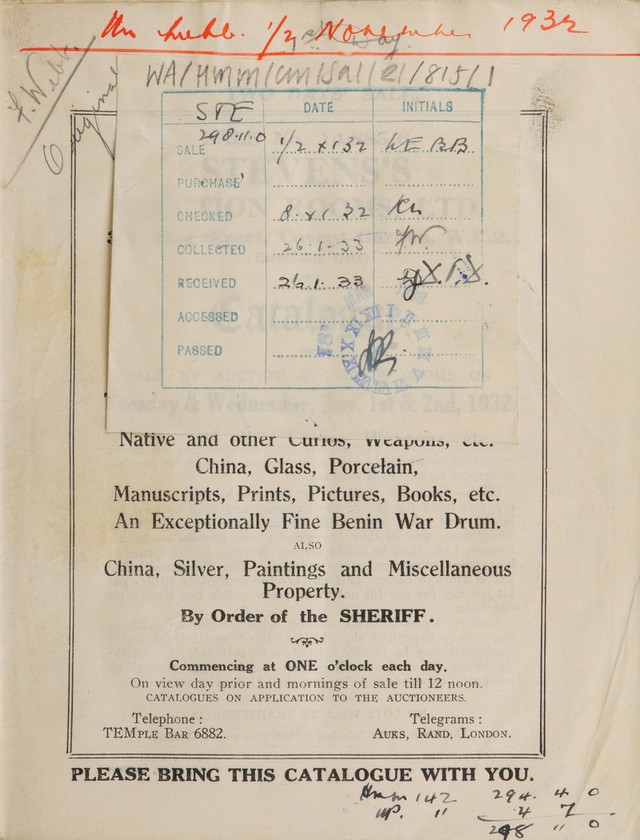 Mr Webb. 1/2 November 1932
F. Webb.
Original
WA/HMM/CM/Sal/21/815/1
STE DATE INITIALS
298.11.0
SALE 1/2 X 132 WEBB
PURCHASE
CHECKED 8. X1 32 Kn
COLLECTED 26-1-33 FW.
RECEIVED 26.1.33
ACCESSED
PASSED
STEVENS'S
AUCTION ROOMS LTD.
Catalogue
Tuesday & Wednesday, Nov. 1st & 2nd, 1932
Native and other Curios, Weapons, etc.
China, Glass, Porcelain,
Manuscripts, Prints, Pictures, Books, etc.
An Exceptionally Fine Benin War Drum.
ALSO
China, Silver, Paintings and Miscellaneous
Property.
By Order of the SHERIFF.
Commencing at ONE o'clock each day.
On view day prior and mornings of sale till 12 noon.
CATALOGUES ON APPLICATION TO THE AUCTIONEERS.
Telephone : Telegrams :
TEMple Bar 6882. Auks, Rand, London.
PLEASE BRING THIS CATALOGUE WITH YOU.
Hmm 142 294. 4 0
" 4 7
298 11 0